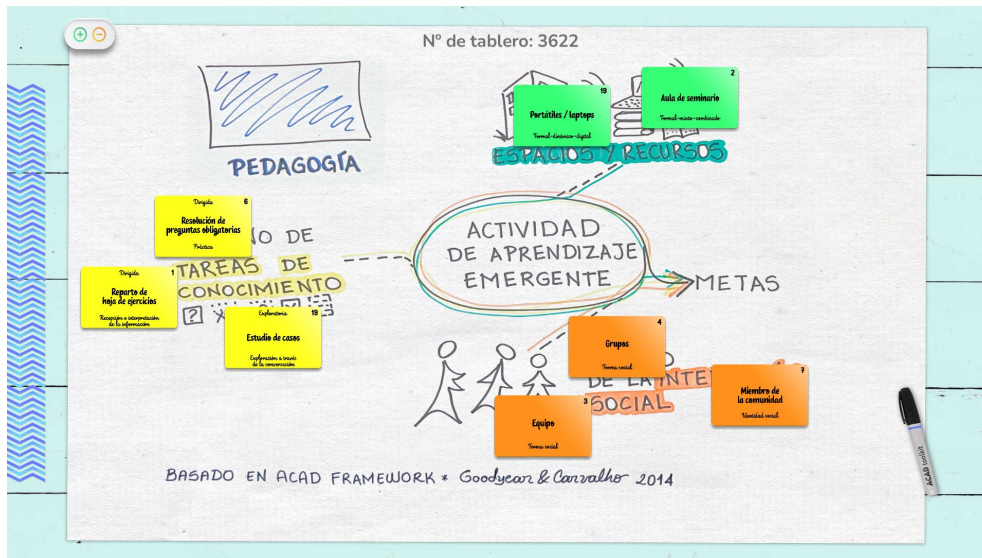 N° de tablero: 3622
PEDAGOGÍA
19
Portátiles / laptops
Formal-dinámico-digital
2
Aula de seminario
Formal-mixto-combinado
ESPACIOS Y RECURSOS
Dirigida 6
Resolución de
preguntas obligatorias
Práctica
NO DE
TAREAS DE
CONOCIMIENTO
Dirigida 1
Reparto de
hoja de ejercicios
Recepción e interpretación
de la información
Exploratoria 19
Estudio de casos
Exploración a través
de la conversación
ACTIVIDAD
DE APRENDIZAJE
EMERGENTE
METAS
4
Grupos
Forma social
DE LA INTE
SOCIAL
3
Equipo
Forma social
7
Miembro de
la comunidad
Identidad social
BASADO EN ACAD FRAMEWORK * Goodyear & Carvalho 2014
ACAD toolkit